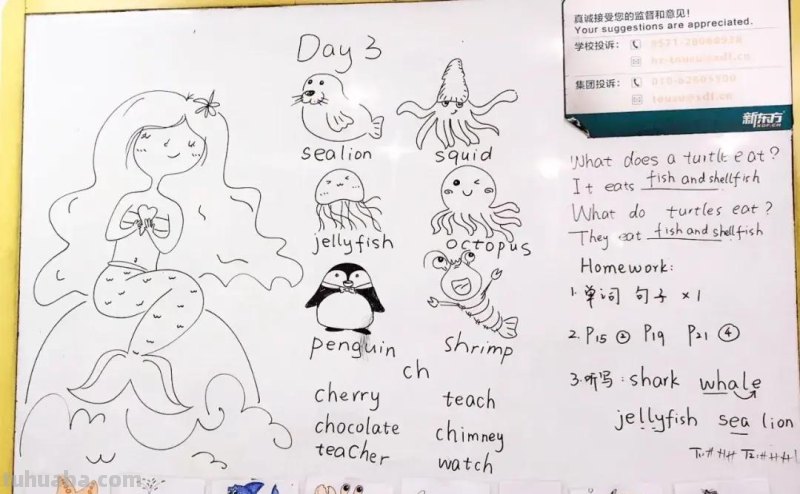 真诚接受您的监督和意见!
Your suggestions are appreciated.
学校投诉：
集团投诉：
新东方
XDF.CN
Day 3
sealion
squid
jellyfish
octopus
penguin
shrimp
ch
cherry
teach
chocolate
chimney
teacher
watch
What does a turtle eat?
It eats fish and shellfish
What do turtles eat?
They eat fish and shellfish
Homework:
1. 单词 句子 ×1
2. P15 ② P19 P21 ④
3. 听写: shark whale
jellyfish sea lion
ruhuaba.com